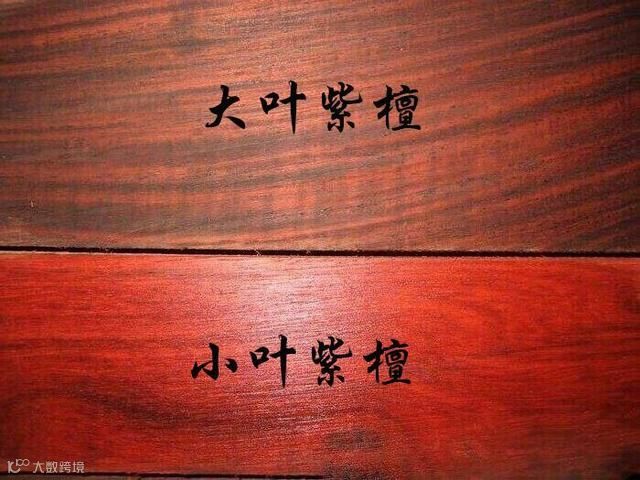 大叶紫檀
小叶紫檀
大数跨境